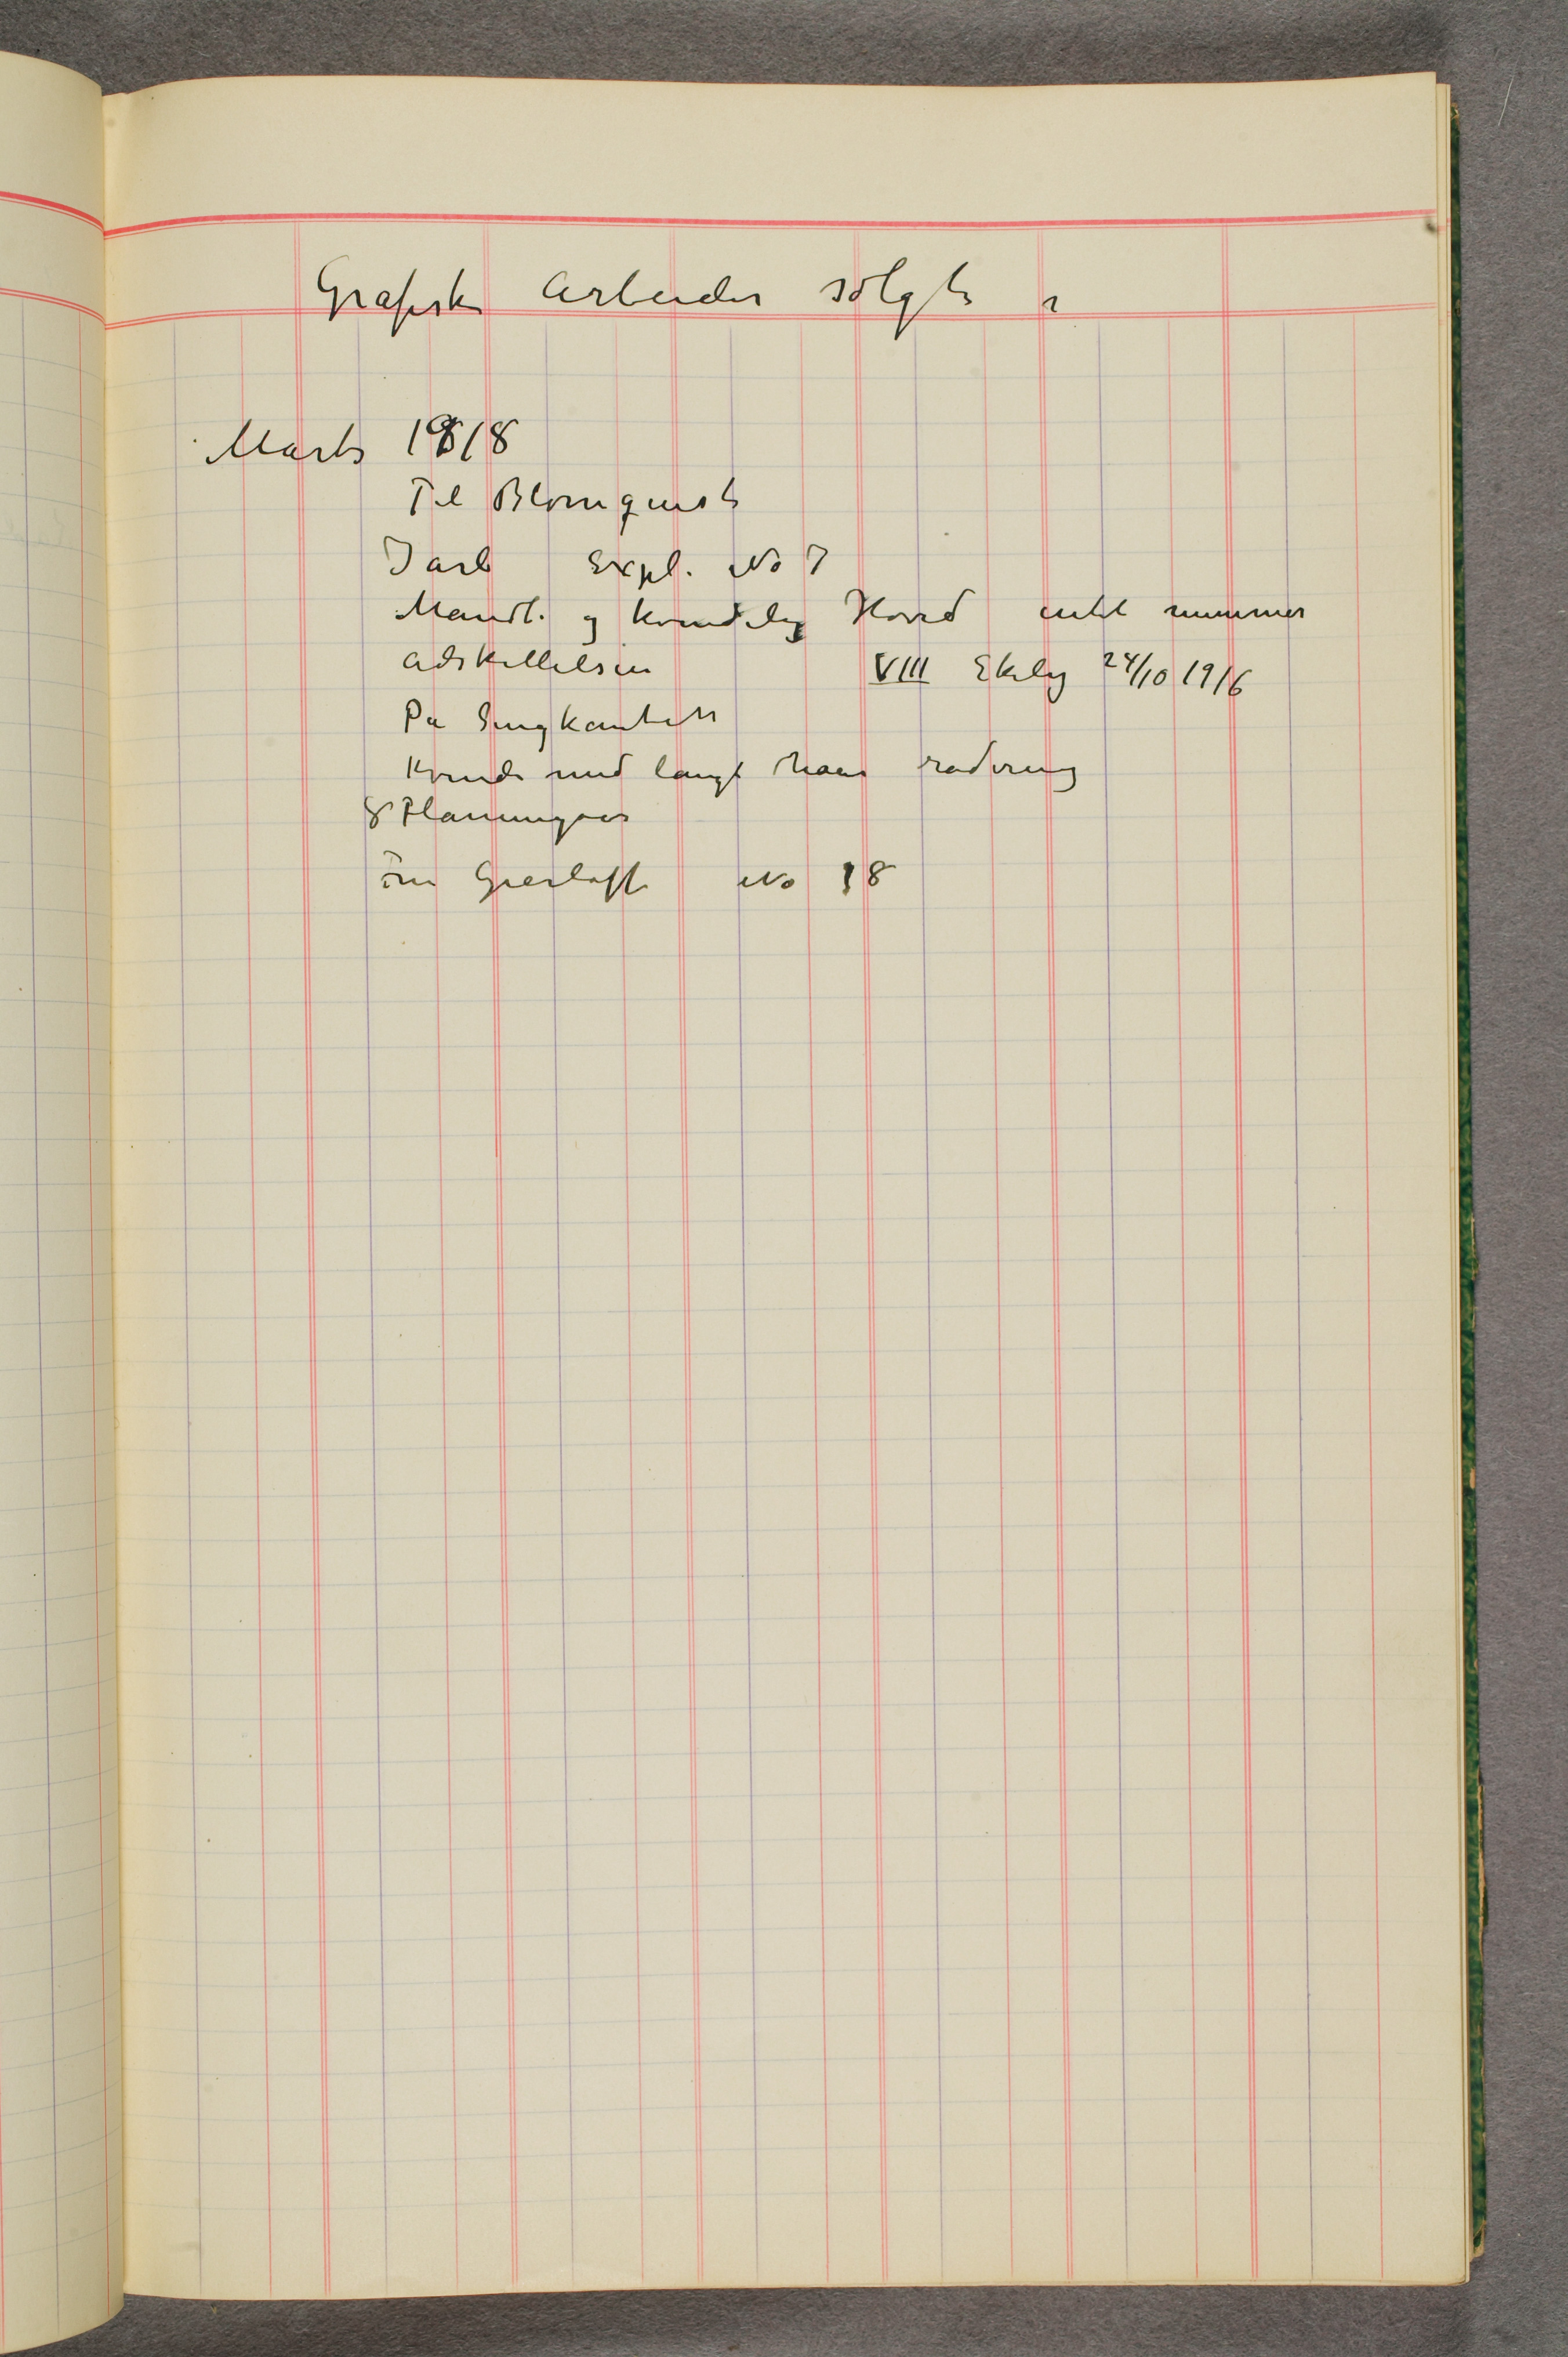 Grafiske Arbeider solgte i
Marts 1918
Til Blomquist
Jarl Expl. No 7
Mandl. og kvindelig Hoved intet nummer
Adskillelsen VIII Ekely 24/10 1916
På Sengkanten
Kvinde med langt haar radering
8
Fru No 18